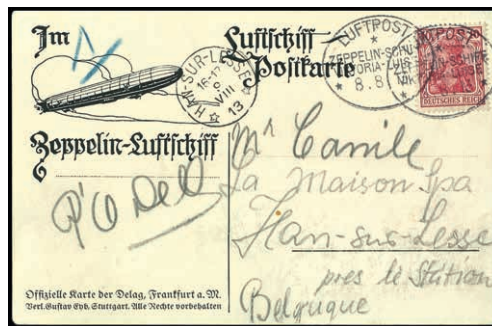 Im
Zeppelin-Luftschiff
Luftschiff
Postkarte
HAN-SUR-LESSE
16-17
9
VIII
13
LUFTPOST
ZEPPELIN-SCHIFF
8.8.
DEUTSCHES REICH
Mr Camile
La Maison Spa
Han-sur-Lesse
pres le Station
Belgique
Offizielle Karte der Delag, Frankfurt a. M.
Verl. Gustav Eyb. Stuttgart. Alle Rechte vorbehalten